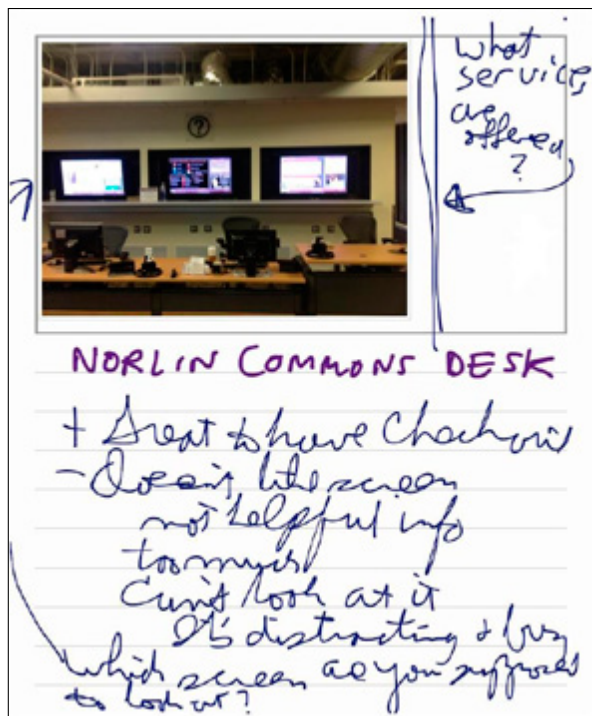 what
services
are
offered
?
?
NORLIN COMMONS DESK
+ Great to have Checkout
- Doesn't like screen
not helpful info
too much
Can't look at it
It's distracting + busy
which screen are you supposed
to look at?